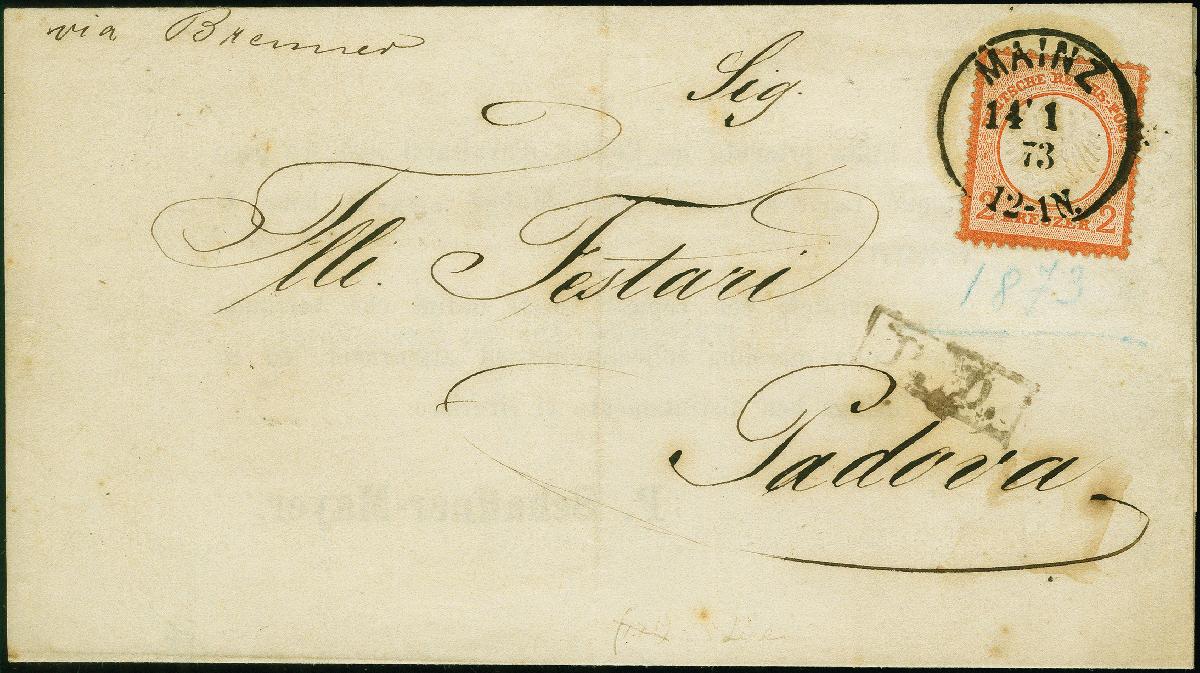 via Brenner
Sig.
Flli. Festari
Padova
MAINZ
14 1
73
12-1N.
DEUTSCHE REICHS-POST
2 KREUZER 2
1873
P.D.